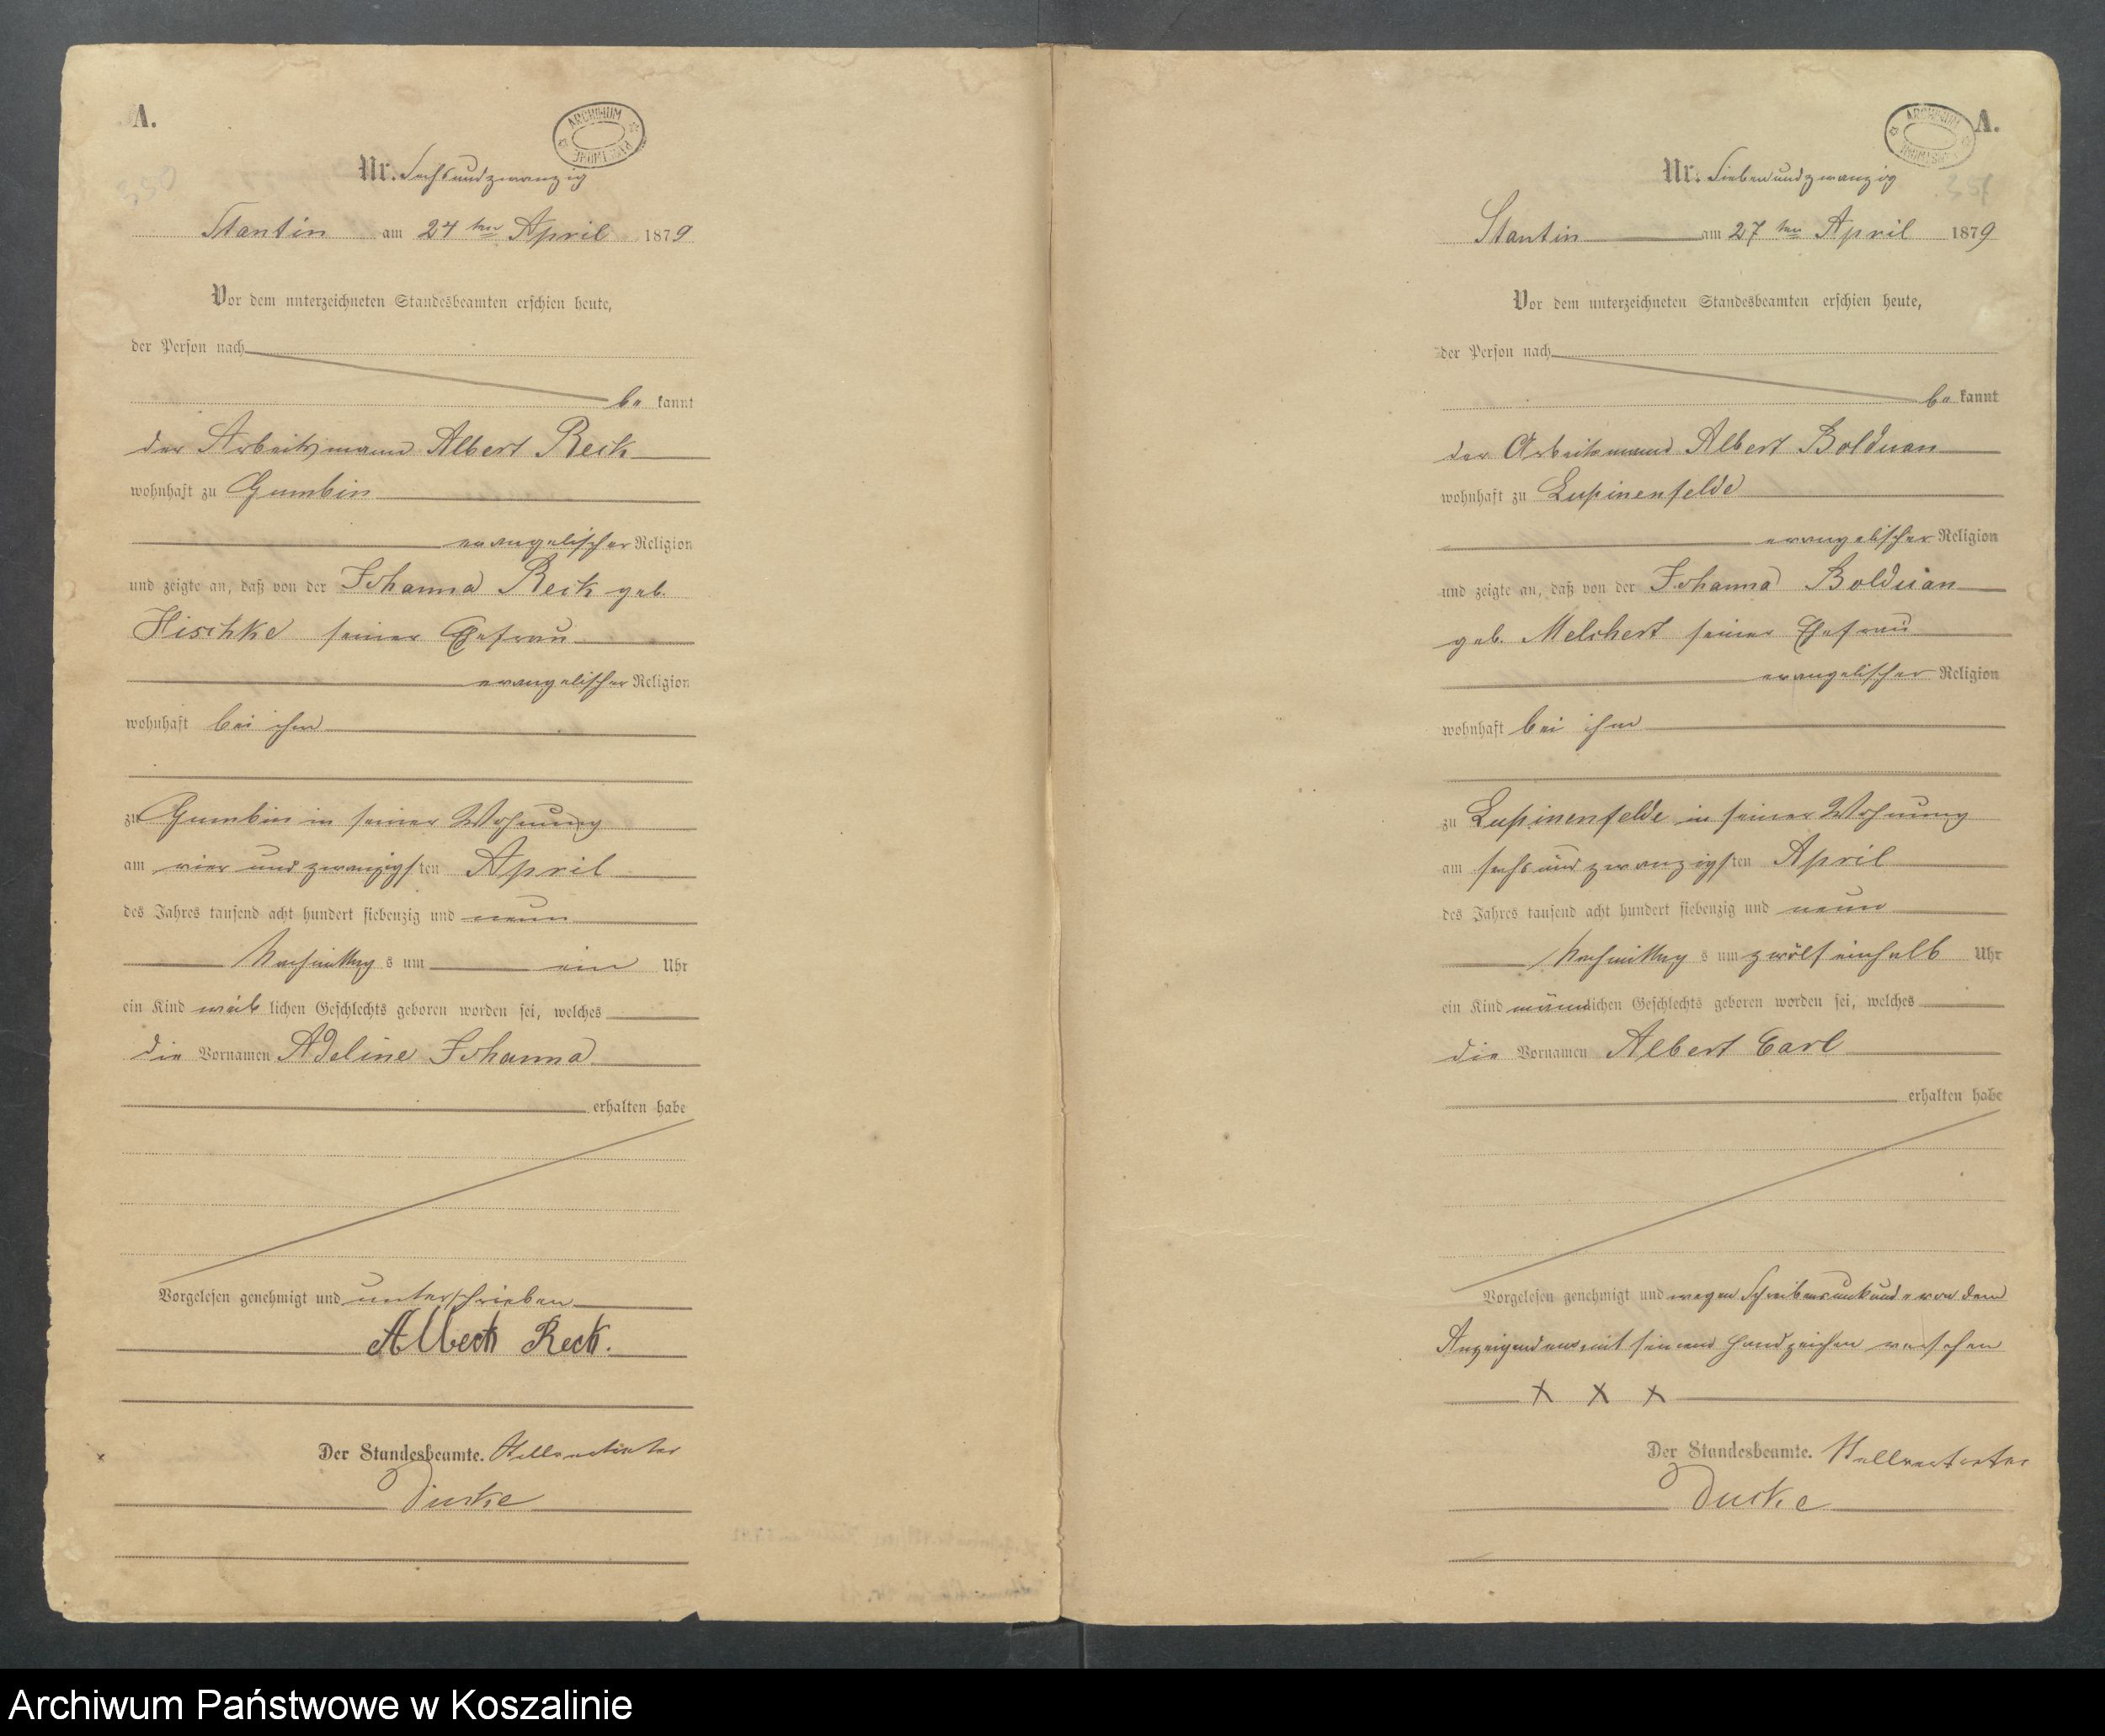 A.
ARCHIWUM
Nr. Sechsundzwanzig
350
Stantin am 24ten April 1879
Vor dem unterzeichneten Standesbeamten erschien heute,
der Person nach
be kannt
der Arbeitsmann Albert Reck
wohnhaft zu Gumbin
evangelischer Religion
und zeigte an, daß von der Johanna Reck geb.
Hischke seiner Ehefrau
evangelischer Religion
wohnhaft bei ihm
zu Gumbin in seiner Wohnung
am vier und zwanzigsten April
des Jahres tausend acht hundert siebenzig und neun
Nachmittags um ein Uhr
ein Kind weiblichen Geschlechts geboren worden sei, welches
die Vornamen Adeline Johanna
erhalten habe
Vorgelesen genehmigt und unterschrieben
Albert Reck.
Der Standesbeamte. Stellvertreter
Ducke
A.
ARCHIWUM
Nr. Siebenundzwanzig
351
Stantin am 27ten April 1879
Vor dem unterzeichneten Standesbeamten erschien heute,
der Person nach
be kannt
der Arbeitsmann Albert Bolduan
wohnhaft zu Lupinenfelde
evangelischer Religion
und zeigte an, daß von der Johanna Bolduan
geb. Melchert seiner Ehefrau
evangelischer Religion
wohnhaft bei ihm
zu Lupinenfelde in seiner Wohnung
am sechsundzwanzigsten April
des Jahres tausend acht hundert siebenzig und neun
Nachmittags um zwölfeinhalb Uhr
ein Kind männlichen Geschlechts geboren worden sei, welches
die Vornamen Albert Carl
erhalten habe
Vorgelesen genehmigt und wegen Schreibensunkunde von dem
Anzeigenden mit seinem Handzeichen versehen
X X X
Der Standesbeamte. Stellvertreter
Ducke
Archiwum Państwowe w Koszalinie